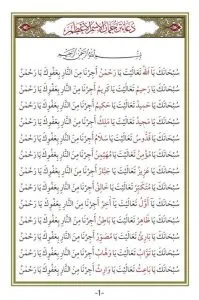 دُعَاءُ تَرْجُمَانِ الْاِسْمِ الْاَعْظَمِ
بِسْمِ اللّٰهِ الرَّحْمٰنِ الرَّحِيمِ
سُبْحَانَكَ يَا اَللّٰهُ تَعَالَيْتَ يَا رَحْمٰنُ اَجِرْنَا مِنَ النَّارِ بِعَفْوِكَ يَا رَحْمٰنُ
سُبْحَانَكَ يَا رَحِيمُ تَعَالَيْتَ يَا كَرِيمُ اَجِرْنَا مِنَ النَّارِ بِعَفْوِكَ يَا رَحْمٰنُ
سُبْحَانَكَ يَا حَمِيدُ تَعَالَيْتَ يَا حَكِيمُ اَجِرْنَا مِنَ النَّارِ بِعَفْوِكَ يَا رَحْمٰنُ
سُبْحَانَكَ يَا مَجِيدُ تَعَالَيْتَ يَا مَلِكُ اَجِرْنَا مِنَ النَّارِ بِعَفْوِكَ يَا رَحْمٰنُ
سُبْحَانَكَ يَا قُدُّوسُ تَعَالَيْتَ يَا سَلَامُ اَجِرْنَا مِنَ النَّارِ بِعَفْوِكَ يَا رَحْمٰنُ
سُبْحَانَكَ يَا مُؤْمِنُ تَعَالَيْتَ يَا مُهَيْمِنُ اَجِرْنَا مِنَ النَّارِ بِعَفْوِكَ يَا رَحْمٰنُ
سُبْحَانَكَ يَا عَزِيزُ تَعَالَيْتَ يَا جَبَّارُ اَجِرْنَا مِنَ النَّارِ بِعَفْوِكَ يَا رَحْمٰنُ
سُبْحَانَكَ يَا مُتَكَبِّرُ تَعَالَيْتَ يَا خَالِقُ اَجِرْنَا مِنَ النَّارِ بِعَفْوِكَ يَا رَحْمٰنُ
سُبْحَانَكَ يَا اَوَّلُ تَعَالَيْتَ يَا اٰخِرُ اَجِرْنَا مِنَ النَّارِ بِعَفْوِكَ يَا رَحْمٰنُ
سُبْحَانَكَ يَا ظَاهِرُ تَعَالَيْتَ يَا بَاطِنُ اَجِرْنَا مِنَ النَّارِ بِعَفْوِكَ يَا رَحْمٰنُ
سُبْحَانَكَ يَا بَارِئُ تَعَالَيْتَ يَا مُصَوِّرُ اَجِرْنَا مِنَ النَّارِ بِعَفْوِكَ يَا رَحْمٰنُ
سُبْحَانَكَ يَا تَوَّابُ تَعَالَيْتَ يَا وَهَّابُ اَجِرْنَا مِنَ النَّارِ بِعَفْوِكَ يَا رَحْمٰنُ
سُبْحَانَكَ يَا بَاعِثُ تَعَالَيْتَ يَا وَارِثُ اَجِرْنَا مِنَ النَّارِ بِعَفْوِكَ يَا رَحْمٰنُ
-1-